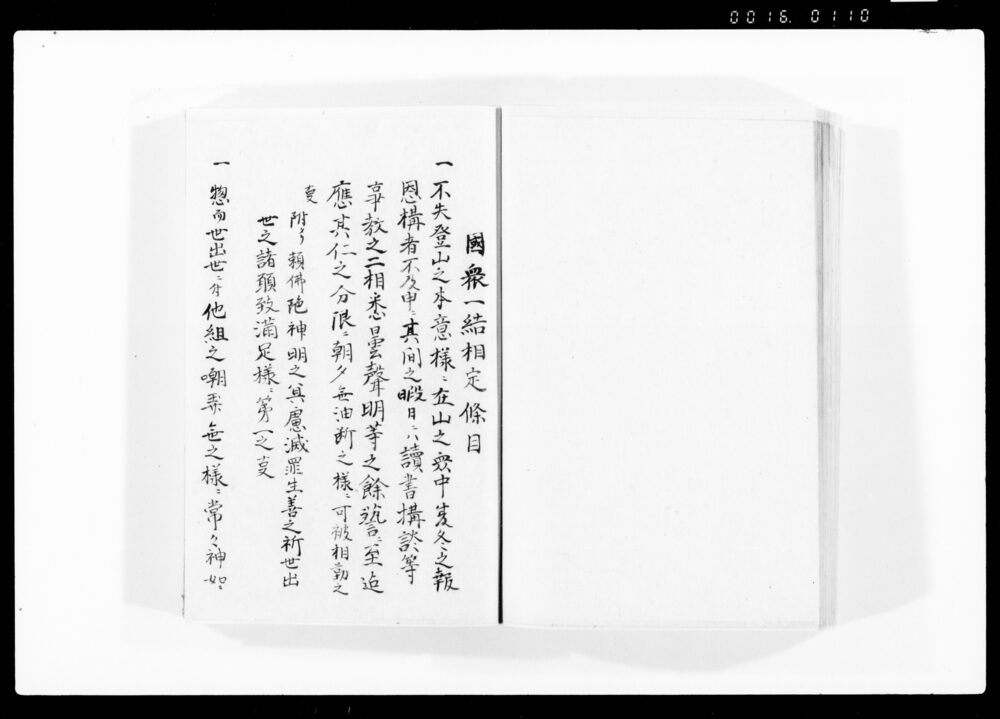 0016.0110
國衆一結相定條目
一 不失登山之本意様ニ在山之衆中夏冬之報
恩構者不及申ニ其间之暇日ニハ讀書構談等
事教之二相悉曇聲明等之餘藝ニ至迠
應其仁之分限ニ朝夕無油断之様ニ可被相勤之
㕝
附タ頼佛陁神明之冥慮滅罪生善之祈世出
世之諸願致滿足様ニ第一之㕝
一 惣而世出世ニ付他組之嘲弄無之様ニ常々神如ニ